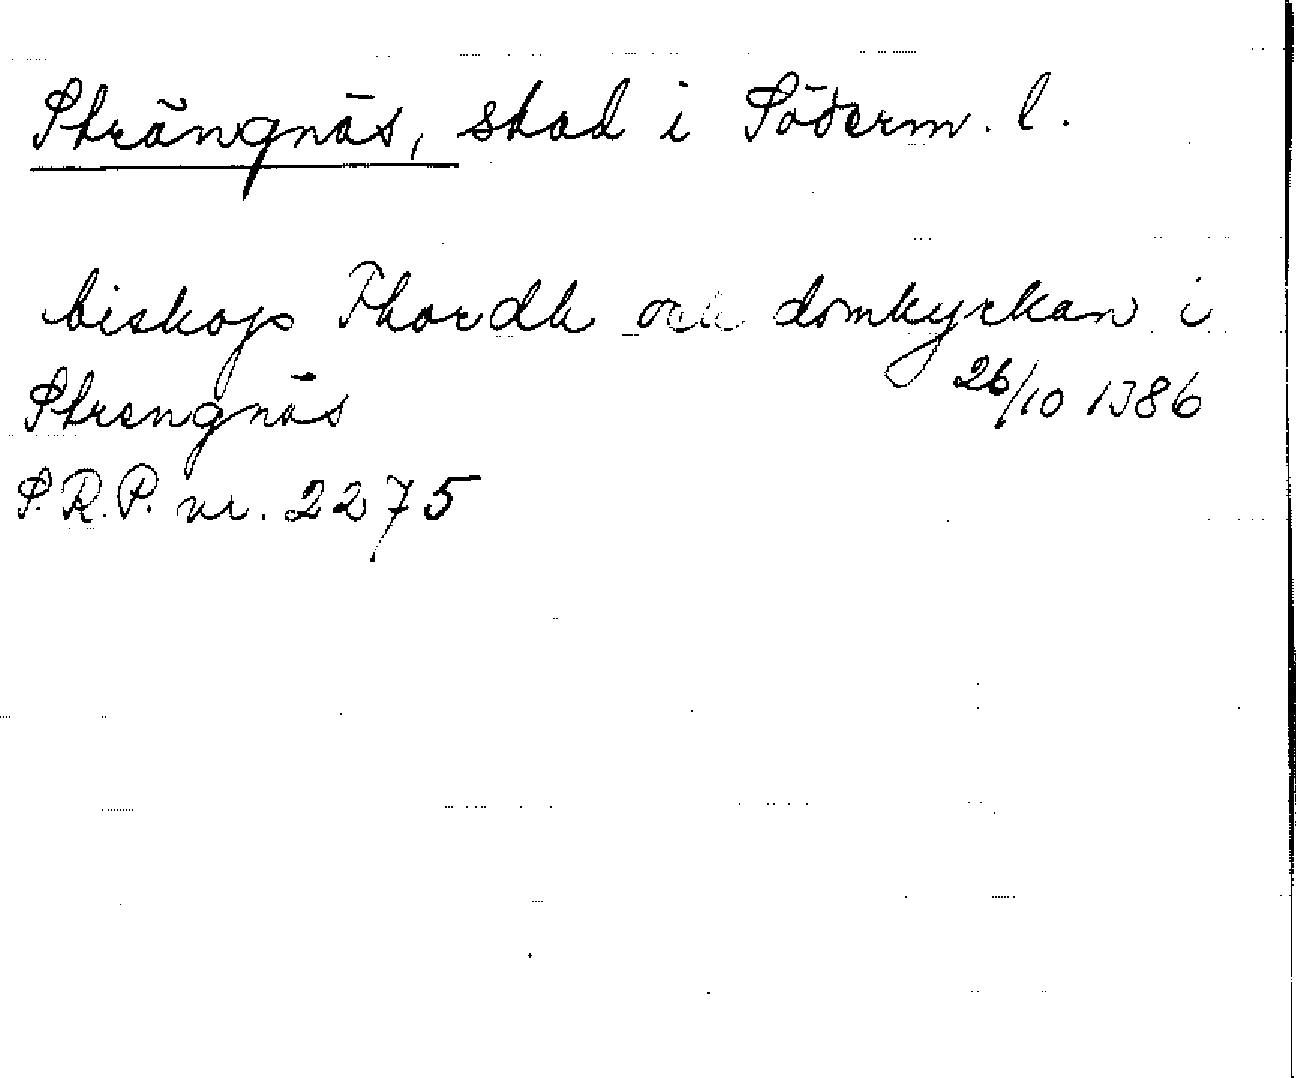 Strängnäs, stad i Söderm. l.
biskop Thordh och domkyrkan i
Strengnäs 26/10 1386
S.R.P. nr. 2275